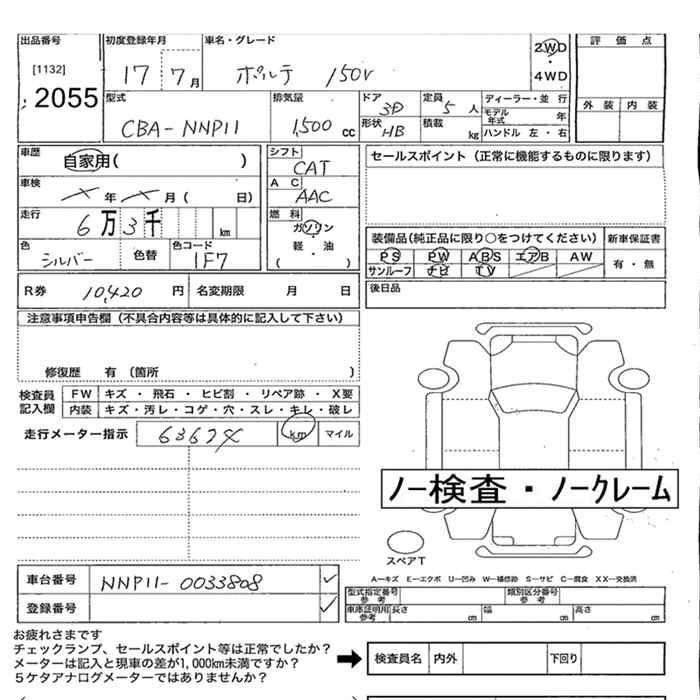 出品番号 初度登録年月 車名・グレード 2WD 評価点
[1132] 17 7月 ポルテ 150V ・ 4WD
2055 型式 排気量 ドア 定員 ディーラー・並行 外装 内装
CBA-NNP11 1,500cc 3D 5人 モデル年式 年
形状 HB 積載 kg ハンドル 左・右
車歴 自家用( ) シフト CAT セールスポイント(正常に機能するものに限ります)
車検 ×年×月( 日) AC AAC
走行 6万3千 km 燃料 ガソリン・軽・油 ( )
装備品(純正品に限り○をつけてください) 新車保証書
色 シルバー 色替 色コード 1F7 PS PW ABS エアB AW 有・無
サンルーフ ナビ TV
R券 10,420円 名変期限 月 日 後日品
注意事項申告欄(不具合内容等は具体的に記入して下さい)
修復歴 有(箇所 )
検査員記入欄 FW キズ・飛石・ヒビ割・リペア跡・X要
内装 キズ・汚レ・コゲ・穴・スレ・キレ・破レ
走行メーター指示 63674 km マイル
ノー検査・ノークレーム
スペアT
車台番号 NNP11-0033808 ✓
A-キズ E-エクボ U-凹み W-補修跡 S-サビ C-腐食 XX-交換済
型式指定番号参考 類別区分番号参考
登録番号 ✓ 車庫証明用参考 長さ cm 幅 cm 高さ cm
お疲れさまです
チェックランプ、セールスポイント等は正常でしたか?
メーターは記入と現車の差が1,000km未満ですか? ➡ 検査員名 内外 下回り
5ケタアナログメーターではありませんか?